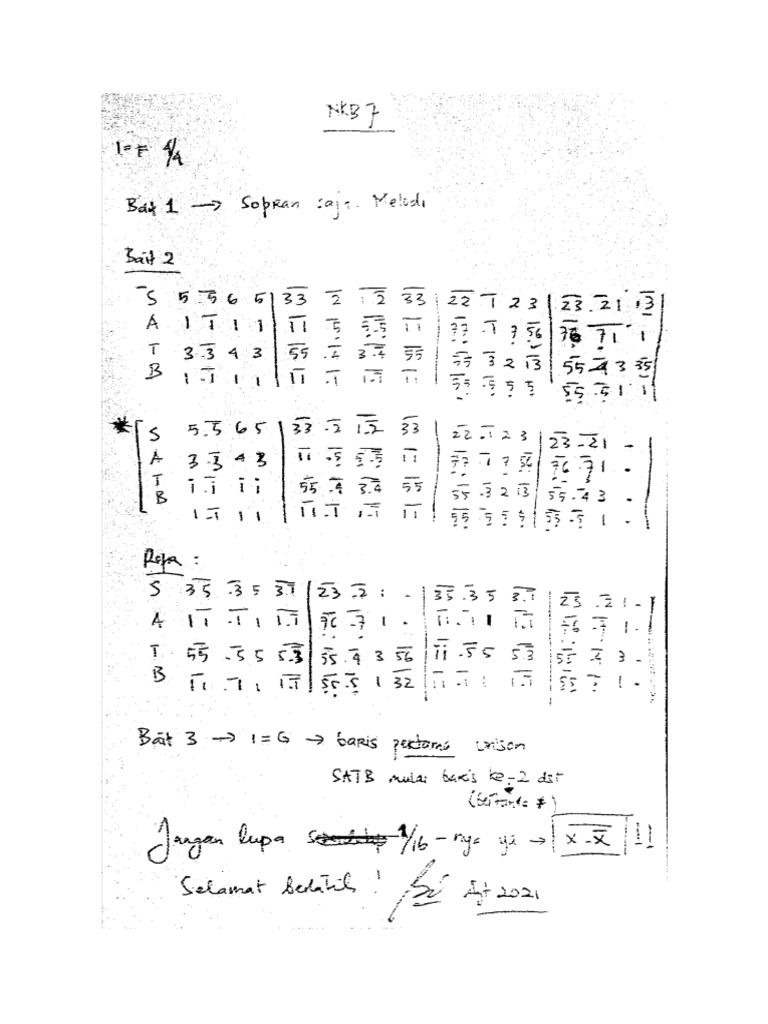 NKB 7
1=F 4/4
Bait 1 → Sopran saja. Melodi
Bait 2
S 5 .5 6 5 | 33 .2 1.2 33 | 22 .1 2 3 | 23 .21 .13 |
A 1 .1 1 1 | 11 .5 5.5 11 | 77 .1 7 56 | 76 .71 1 |
T 3 .3 4 3 | 55 .4 3.4 55 | 55 .3 2 13 | 55 .4 3 35 |
B 1 .1 1 1 | 11 .1 1.1 11 | 55 .5 5 5 | 55 .5 1 1 |
* S 5 .5 6 5 | 33 .2 1.2 33 | 22 .1 2 3 | 23 .21 . |
A 3 .3 4 3 | 11 .5 5.5 11 | 77 .1 7 56 | 76 .71 . |
T 1 .1 1 1 | 55 .4 3.4 55 | 55 .3 2 13 | 55 .4 3 . |
B 1 .1 1 1 | 11 .1 1.1 11 | 55 .5 5 5 | 55 .5 1 . |
S 35 .3 5 3.1 | 23 .2 1 . | 35 .3 5 3.1 | 23 .2 1 .
A 11 .1 1 1.1 | 76 .7 1 . | 11 .1 1 1.1 | 76 .7 1 .
T 55 .5 5 5.3 | 55 .4 3 56 | 11 .5 5 5.3 | 55 .4 3 .
B 11 .1 1 1.1 | 55 .5 1 32 | 11 .1 1 1.1 | 55 1 .
Bait 3 → 1=G → baris pertama unison
SATB mulai baris ke-2 dst
(bertanda *)
Jangan lupa 1/16 - nya yi → x .x !!
Selamat berlatih! 2021